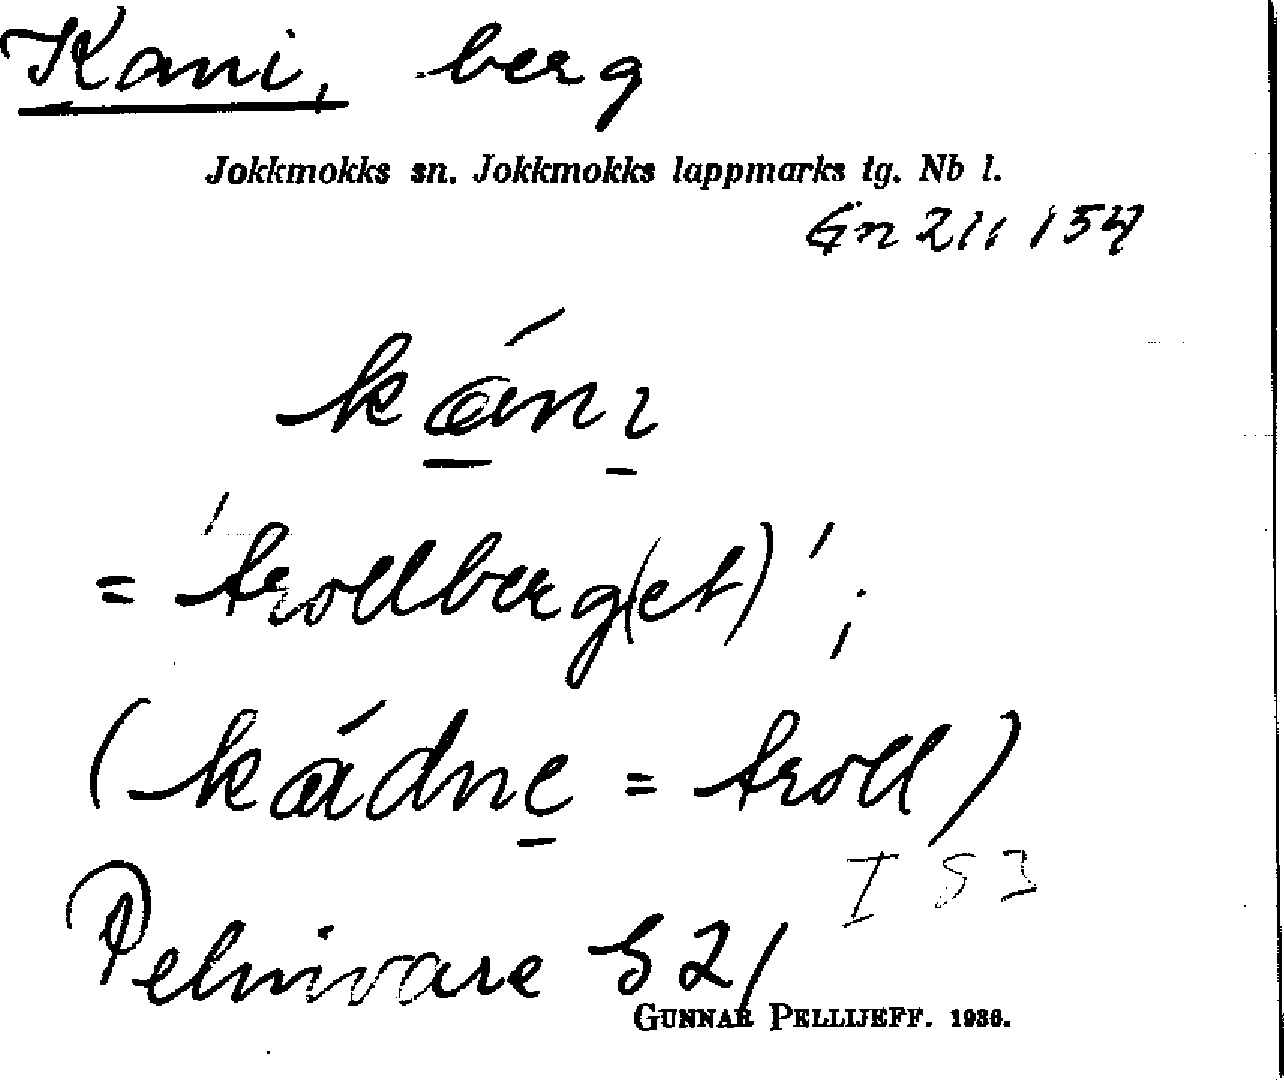 Kani, berg
Jokkmokks sn. Jokkmokks lappmarks tg. Nb l.
Gn 211 154
káni
= 'trollberg(et)';
(kádne = troll)
I S3
Pelnivare S 21
GUNNAR PELLIJEFF. 1936.